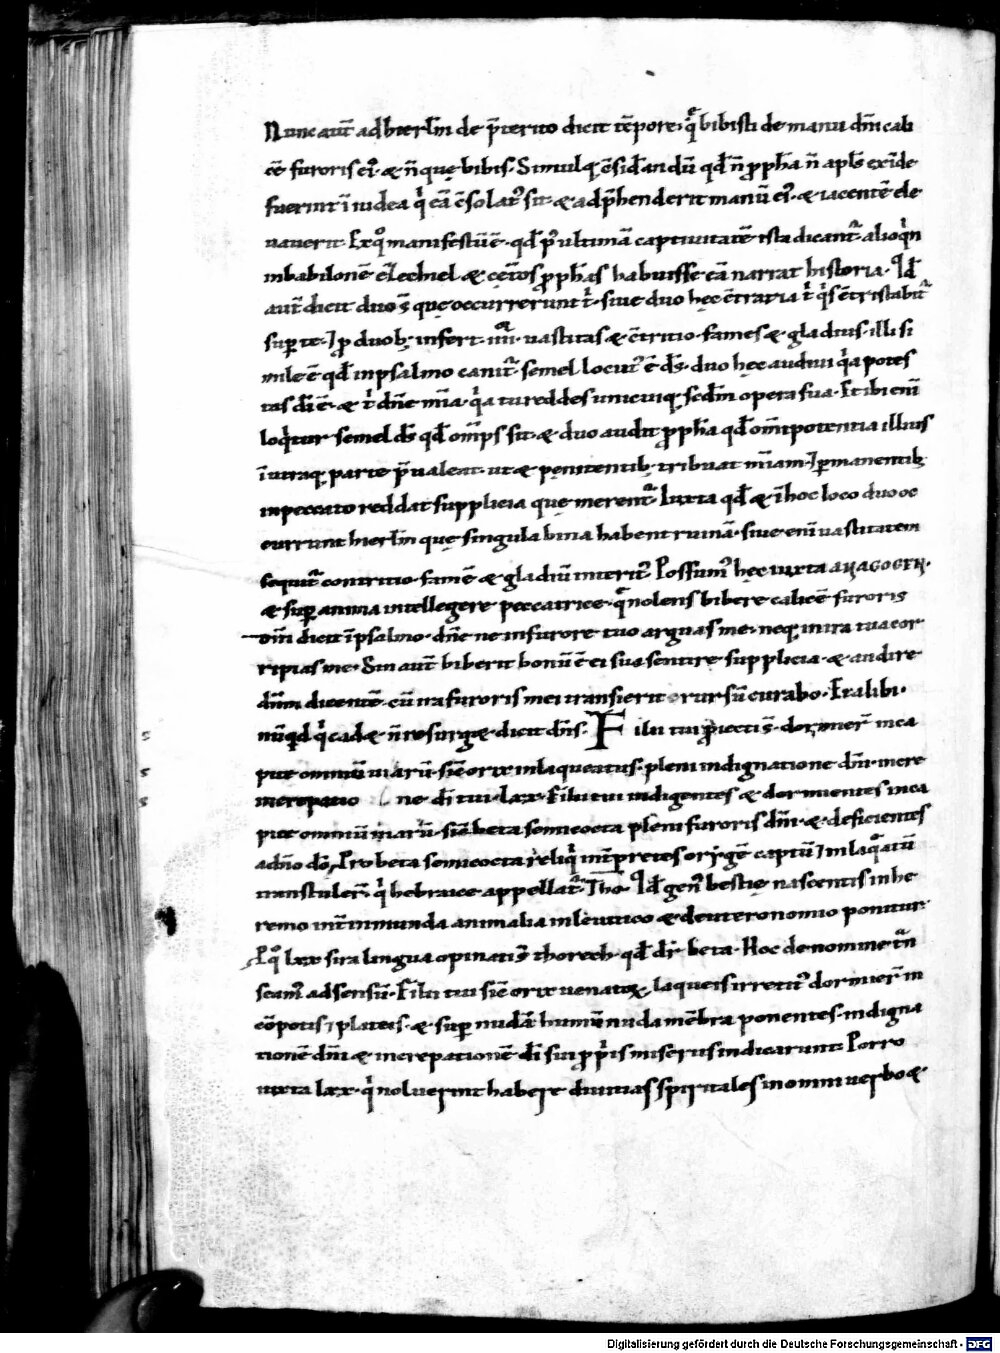 Nunc aut̄ ad hierl̄m de p̄terito dicit tēpore· q̄ bibisti de manu dn̄i cali
cē furoris ei'· & n̄ que bibis· Simulq; c̄sid̄andū qd̄ n̄ ppħa n̄ apl̄s exinde
fuerint ī iudea q̇ eā c̄solat' sit· & adp̄henderit manū ei'· & iacentē ele
uauerit· Ex q° manifestū ē· qd̄ p' ultimā captiuitatē ista dicant'· alioq̇n
in babilonē & ezechiel & cęt̄os ppħas habuisse eā narrat historia· Id̄
aut̄ dicit duo s̄ quę occurrerunt ṫ· siue duo hęc c̄traria ṫ q̇s c̄tristabit'
sup te· p duob; infert· iiii· uastitas & c̄tritio· fames & gladius· illi si
mile ē qd̄ in psalmo canit'· semel locut' ē ds̄· duo hęc audiui q̇a potes
tas dī ē· & ṫ dn̄e mīa· q̇a tu reddes unicuiq; scd̄m opera sua· Et ibi enī
loq̇tur semel ds̄ qd̄ om̄ps sit· & duo audit ppħa qd̄ om̄ipotentia illius
ī utraq; parte p̄ualeat· ut & pęnitentib; tribuat mīam· & pmanentib;
in peccato reddat supplicia quę merent'· Iuxta qd̄ & ī hoc loco duo oc
currunt hierl̄m quę singula bina habent ruinā· siue enī uastitatem
sequit' contritio· famē & gladiū interit'· Possum' hęc iuxta
& sup anima intellegere peccatrice· q̄ nolens bibere calicē furoris
dn̄i dicit ī psalmo· dn̄e ne in furore tuo arguas me· neq; in ira tua cor
ripias me· Sin aut̄ biberit bonū ē ei sua sentire supplicia· & audire
dn̄m dicentē· cū ira furoris mei transierit rursū curabo· Et alibi·
nūqd̄ q̇ cad& n̄ resurg&· dicit dn̄s· Filii tui piecti s̄· dormier̄ in ca
pite omniū uiarū· sic̄ orix inlaqueatus· pleni indignatione dn̄i· incre
increpatio ne dī tui· lxx· Filii tui indigentes & dormientes in ca
pite omniū uiarū· sic̄ beta semicocta pleni furoris dn̄i· & deficientes
a dn̄o dō· Pro beta semicocta reliq̇ int̄pretes origē captū inlaq̄atū
transtuler̄· q̇ hebraice appellat' Tho· Id̄ gen' bestię nascentis in he
remo int̄ inmunda animalia in leuitico & deuteronomio ponitur·
P q° lxx sira lingua opinati s̄ thorech· qd̄ dr̄ beta· Hoc de nomine t̄n
seam' ad sensū· Filii tui sic̄ orix uenatox laqueis irretit' dormier̄ in
cōpetis plateis· & sup nudā humū nuda mēbra ponentes· indigna
tionē dn̄i & increpationē dī sui ppīs miseriis indicarunt· Porro
iuxta lxx· q̇ noluerint habere diuitias spiritales in omni uerbo &·